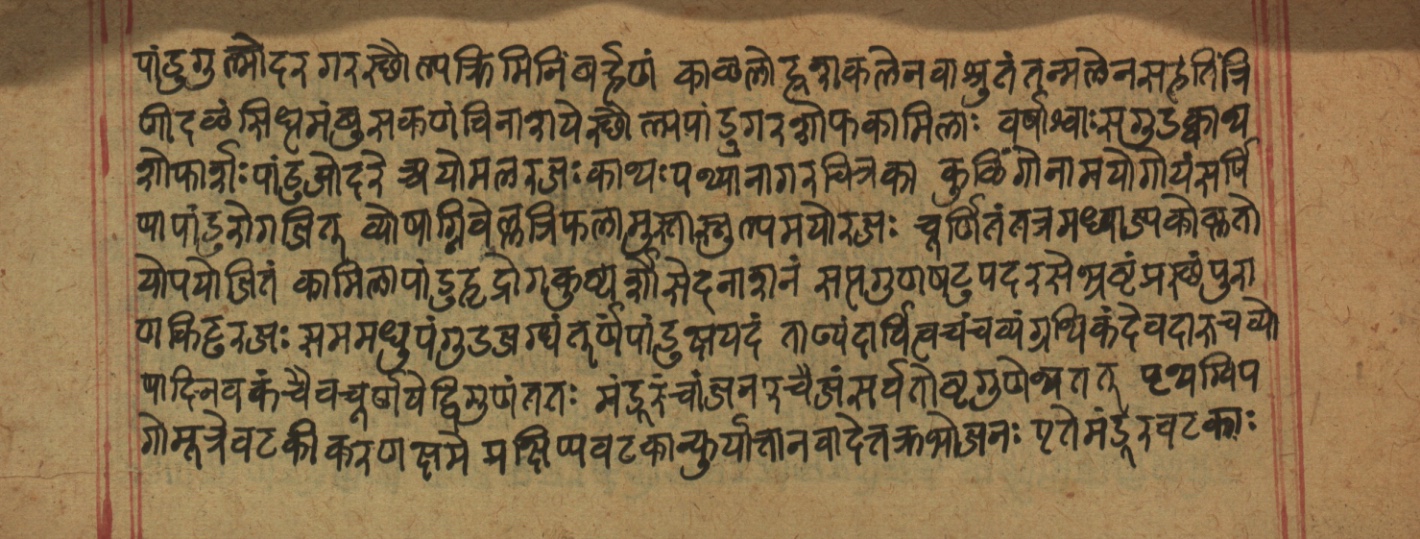 पांडुगुल्मोदरगरस्थौल्यक्रिमिनिबर्हणं काळलोहशकलेनवाश्रुतंतन्मलेनसहतिंत्रि
णीदळंसिध्ममंबुसकणंविनाशयेस्थौल्यपांडुगरशोफकामिलाः वर्षाभ्वाःसगुडक्वाथ
शोफार्शःपांडुजोदरे अयोमलरजःक्वाथःपथ्यानागरचित्रका कुळिंगोनामयोगोयंसर्पि
षापांडुरोगजित् व्योषाग्निवेल्लत्रिफलामुस्तास्तुल्पमयोरजः चूर्णितंतत्रमध्वाज्यकोष्णतो
योपयोजितं कामिलापांडुहृद्रोगकुष्टार्शोसेदनाशनं सप्तगुणषटुपदरसेभ्रष्टंप्रस्थंपुरा
णकिट्टरजः सममधुपंगुडजग्धंतूर्णंपांडुक्षयदं ताप्यंदार्वित्वचंचव्यंग्रंथिकंदेवदारुचव्यो
षादिनवकंचैवचूर्णयेद्विगुणंततः मंडूरंचांजनरचैजंसर्वतोष्टगुणेथतत् पृथग्विप
गोमूत्रेवटकीकरणक्षमे प्रक्षिप्यवटकान्कुर्यात्तानवादेत्तक्रभोजनः एतेमंडूरवटकाः